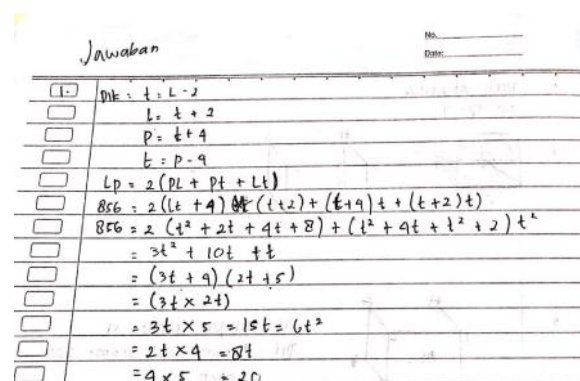 No.
Date:
Jawaban
1. Dik : t = L - 2
L = t + 2
P = t + 4
t = p - 4
Lp = 2 (PL + Pt + Lt)
856 = 2 (t + 4) (t+2) + (t+4) t + (t+2) t)
856 = 2 (t² + 2t + 4t + 8) + (t² + 4t + t² + 2) t²
= 3t² + 10t + t
= (3t + 4) (2t + 5)
= (3t x 2t)
= 3t x 5 = 15t = 6t²
= 2t x 4 = 8t
= 4 x 5 = 20